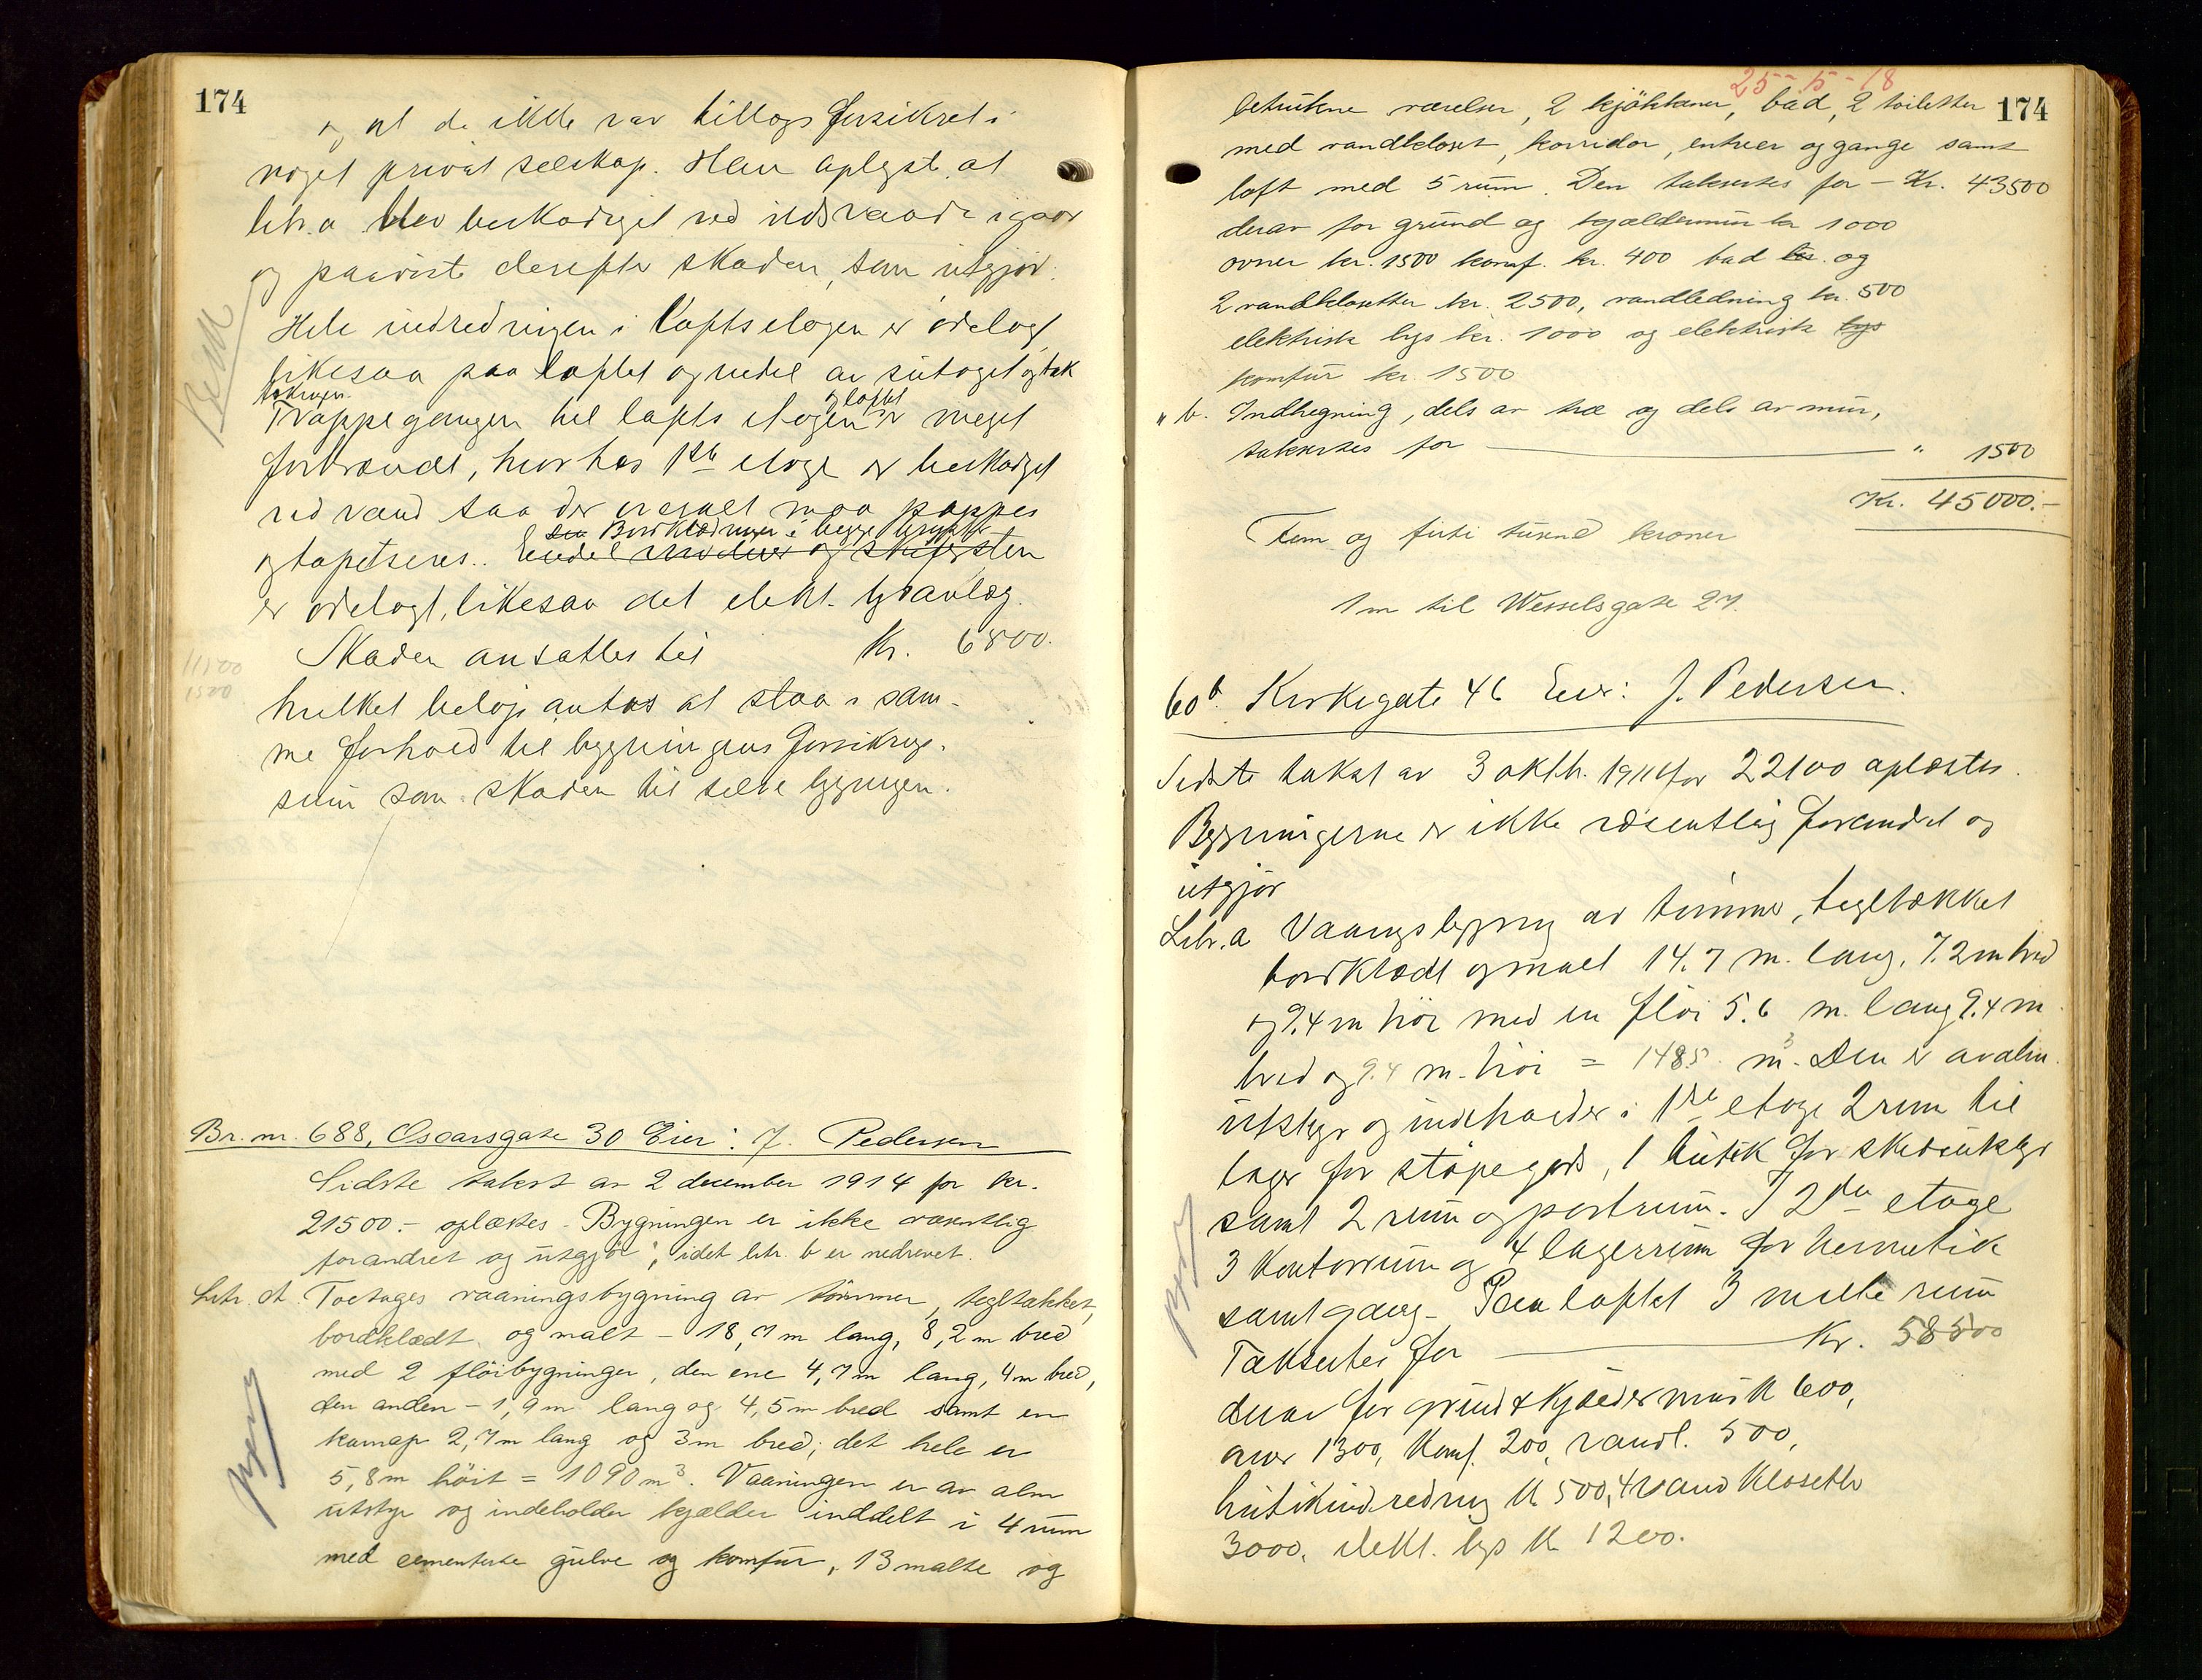 174
og at de ikke var tillægsforsikret i
noget privat selskap. Han oplyste, at
litr. a blev beskadiget ved ildsvaade igaar
og paaviste derefter skaden, som utgjør:
Hele indredningen i loftsetagen er ødelagt
likesaa paa loftet og endel av sutaget og tak
Trappegangen til lofts etagen og loftet er meget
forbrændt, hos 1ste etage er beskadiget
ved vand saa der overalt maa pappes
og tapetseres. Bordklædningen i begge
Endel vinduer og
er ødelagt, likesaa det elekt. lysanlæg.
Skaden ansattes til Kr. 6800.
11100
1500
hvilket beløp antas at staa i sam-
me forhold til bygningens forsikrings-
sum som skaden til selve bygningen.
Br. nr. 688, Oscarsgate 30 Eier: J. Pedersen
Sidste takst av 2 december 1914 for kr.
21500.- oplæstes - Bygningen er ikke væsentlig
forandret og utgjør; idet litr. b er nedrevet.
Litr. A. Toetages vaaningsbygning av tømmer, tegltækket,
bordklædt og malt - 18,7 m lang, 8,2 m bred
med 2 fløibygninger, den ene 4,7 m lang, 4 m bred,
den anden - 1,9 m lang og 4,5 m bred samt en
karnap 2,7 m lang og 3 m bred; det hele er
5,8 m høit = 1090 m³. Vaaningen er av alm
utstyr og indeholder kjælder inddelt i 4 rum
med cementerte gulve og komfur, 13 malte og
25-5-18
174
betrukne værelser, 2 kjøkkener, bad, 2 toiletter
med vandkloset, korridor, entreer og gange samt
loft med 5 rum. Den takseres for - Kr. 43500
derav for grund og kjældermur kr 1000
ovner kr. 1500 komf. kr. 400 bad kr. og
2 vandklosetter kr. 2500, vandledning kr. 500
elektrisk lys kr. 1000 og elektrisk lys
komfur kr. 1500
" b. Indhegning, dels av træ og dels av mur,
takseres for " 1500
Kr. 45000.-
Fem og firti tusend kroner
1 m til Wesselsgate 27.
60b. Kirkegate 46 Eier: J. Pedersen.
Sidste takst av 3 oktbr. 1911 for 22100 oplæstes.
Bygningerne er ikke væsentlig forandret og
utgjør
Litr. a Vaaningsbygning av tømmer, tegltækket
bordklædt og malt 14.7 m. lang, 7.2 m bred
og 9.4 m høi med en fløi 5.6 m. lang 9.4 m
bred og 9.4 m. høi = 1485 m³. Den er av alm.
utstyr og indeholder i 1ste etage 2 rum til
lager for støpegods, 1 butik for
samt 2 rum og portrum. I 2den etage
3 kontorrum og 4 lagerrum for hermetik
samt gang - Paa loftet 3 malte rum
Takseres for Kr. 58500
derav for grund & kjældermur kr 600,
ovner 1300, komf. 200, vandl. 500,
butikindredning kr 500, 4 vandklosetter
3000, elekt. lys kr 1200.